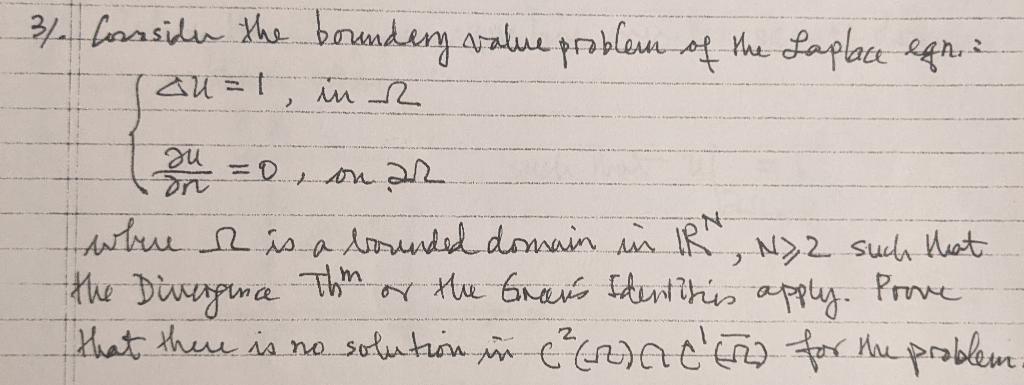 3/. Consider the boundary value problem of the Laplace eqn.:
Δu = 1, in Ω
∂u/∂n = 0, on ∂Ω
where Ω is a bounded domain in ℝᴺ, N ≥ 2 such that
the Divergence Thᵐ or the Green's Identities apply. Prove
that there is no solution in C²(Ω) ∩ C¹(Ω̅) for the problem.